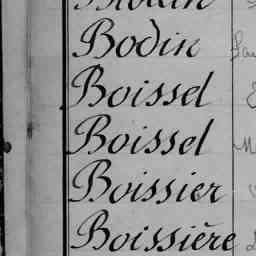 Bodin
Boissel
Boissel
Boissier
Boissière